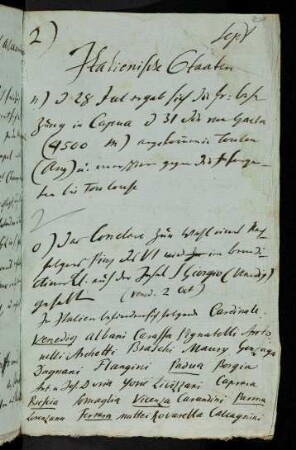 2)
Sept
Italienische Staaten
n) d 28 Jul ergab sich die fr: besa
zung in Capua d 31 die von Gaeta
(4500 M) angekommen in Toulon
(Aug) u. marschieren gegen die
bei Toulouse
o) Das Conclave zur Wahl eines Nach
folgers Pius des VI wird in
auf der Insel S Giorgio (Venedig)
gehalt
In Italien befinden sich folgende Cardinäle.
Venedig Albani Caraffa Pignatelli Anto
nelli Archetti Braschi Maury Gonzaga
Dugnani Flangini Padua Borgia
Ant u Jos Doria York Livizzani Caprara
Brescia Somaglia Vicenza Carandini Parma
Lorenzana Ferrara Mattei Rovarella Calcagnini